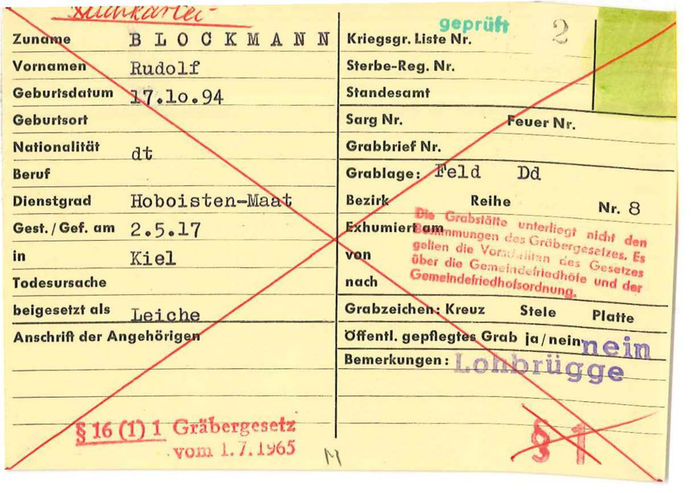 Suchkartei
geprüft
Zuname BLOCKMANN
Vornamen Rudolf
Geburtsdatum 17.1o.94
Geburtsort
Nationalität dt
Beruf
Dienstgrad Hoboisten-Maat
Gest./Gef. am 2.5.17
in Kiel
Todesursache
beigesetzt als Leiche
Anschrift der Angehörigen
§ 16 (1) 1 Gräbergesetz
vom 1.7.1965
M
Kriegsgr. Liste Nr. 2
Sterbe-Reg. Nr.
Standesamt
Sarg Nr. Feuer Nr.
Grabbrief Nr.
Grablage: Feld Dd
Bezirk Reihe Nr. 8
Exhumiert am
von
nach
Die Grabstätte unterliegt nicht den
Bestimmungen des Gräbergesetzes. Es
gelten die Vorschriften des Gesetzes
über die Gemeindefriedhöfe und der
Gemeindefriedhofsordnung.
Grabzeichen: Kreuz Stele Platte
Öffentl. gepflegtes Grab ja/nein nein
Bemerkungen: Lohbrügge
§ 1